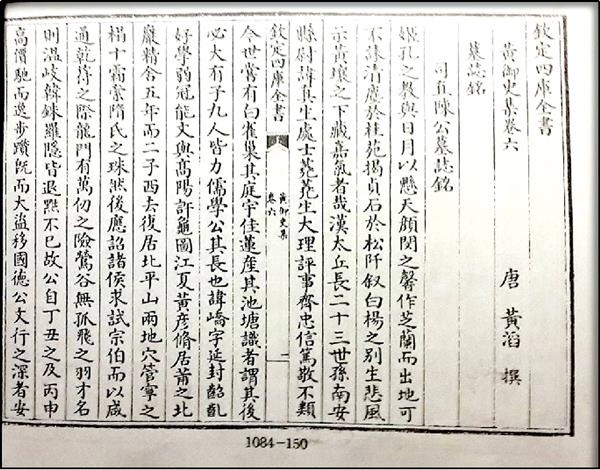 欽定四庫全書
黃御史集卷六
唐 黃滔 撰
墓誌銘
司直陳公墓誌銘
姬孔之教與日月以懸天顏閔之馨作芝蘭而出地可
不清塵於桂苑揭貞石於松阡叙白楊之別生悲風
示黃壤之下藏嘉氣者哉漢太丘長二十三世孫南安
縣尉諱其生處士生大理評事齊忠信篤敬不類
欽定四庫全書
黃御史集
卷六
二
今世嘗有白雀巢其庭宇佳蓮產其池塘識者謂其後
必大有子九人皆力儒學公其長也諱嶠字延封齠亂
好學弱冠能文與高陽許龜圖江夏黃彥脩居莆之北
巖精舍五年而二子西去復居北平山兩地穴管寧之
榻十霜索隋氏之珠然後應詔諸侯求試宗伯而以咸
通乾符之際龍門有萬仞之險鶯谷無孤飛之羽才名
則溫岐韓銖羅隱皆退黙不已故公自丁丑之及丙申
高價馳而逸步躓既而大盜移國德公文行之深者安
1084-150